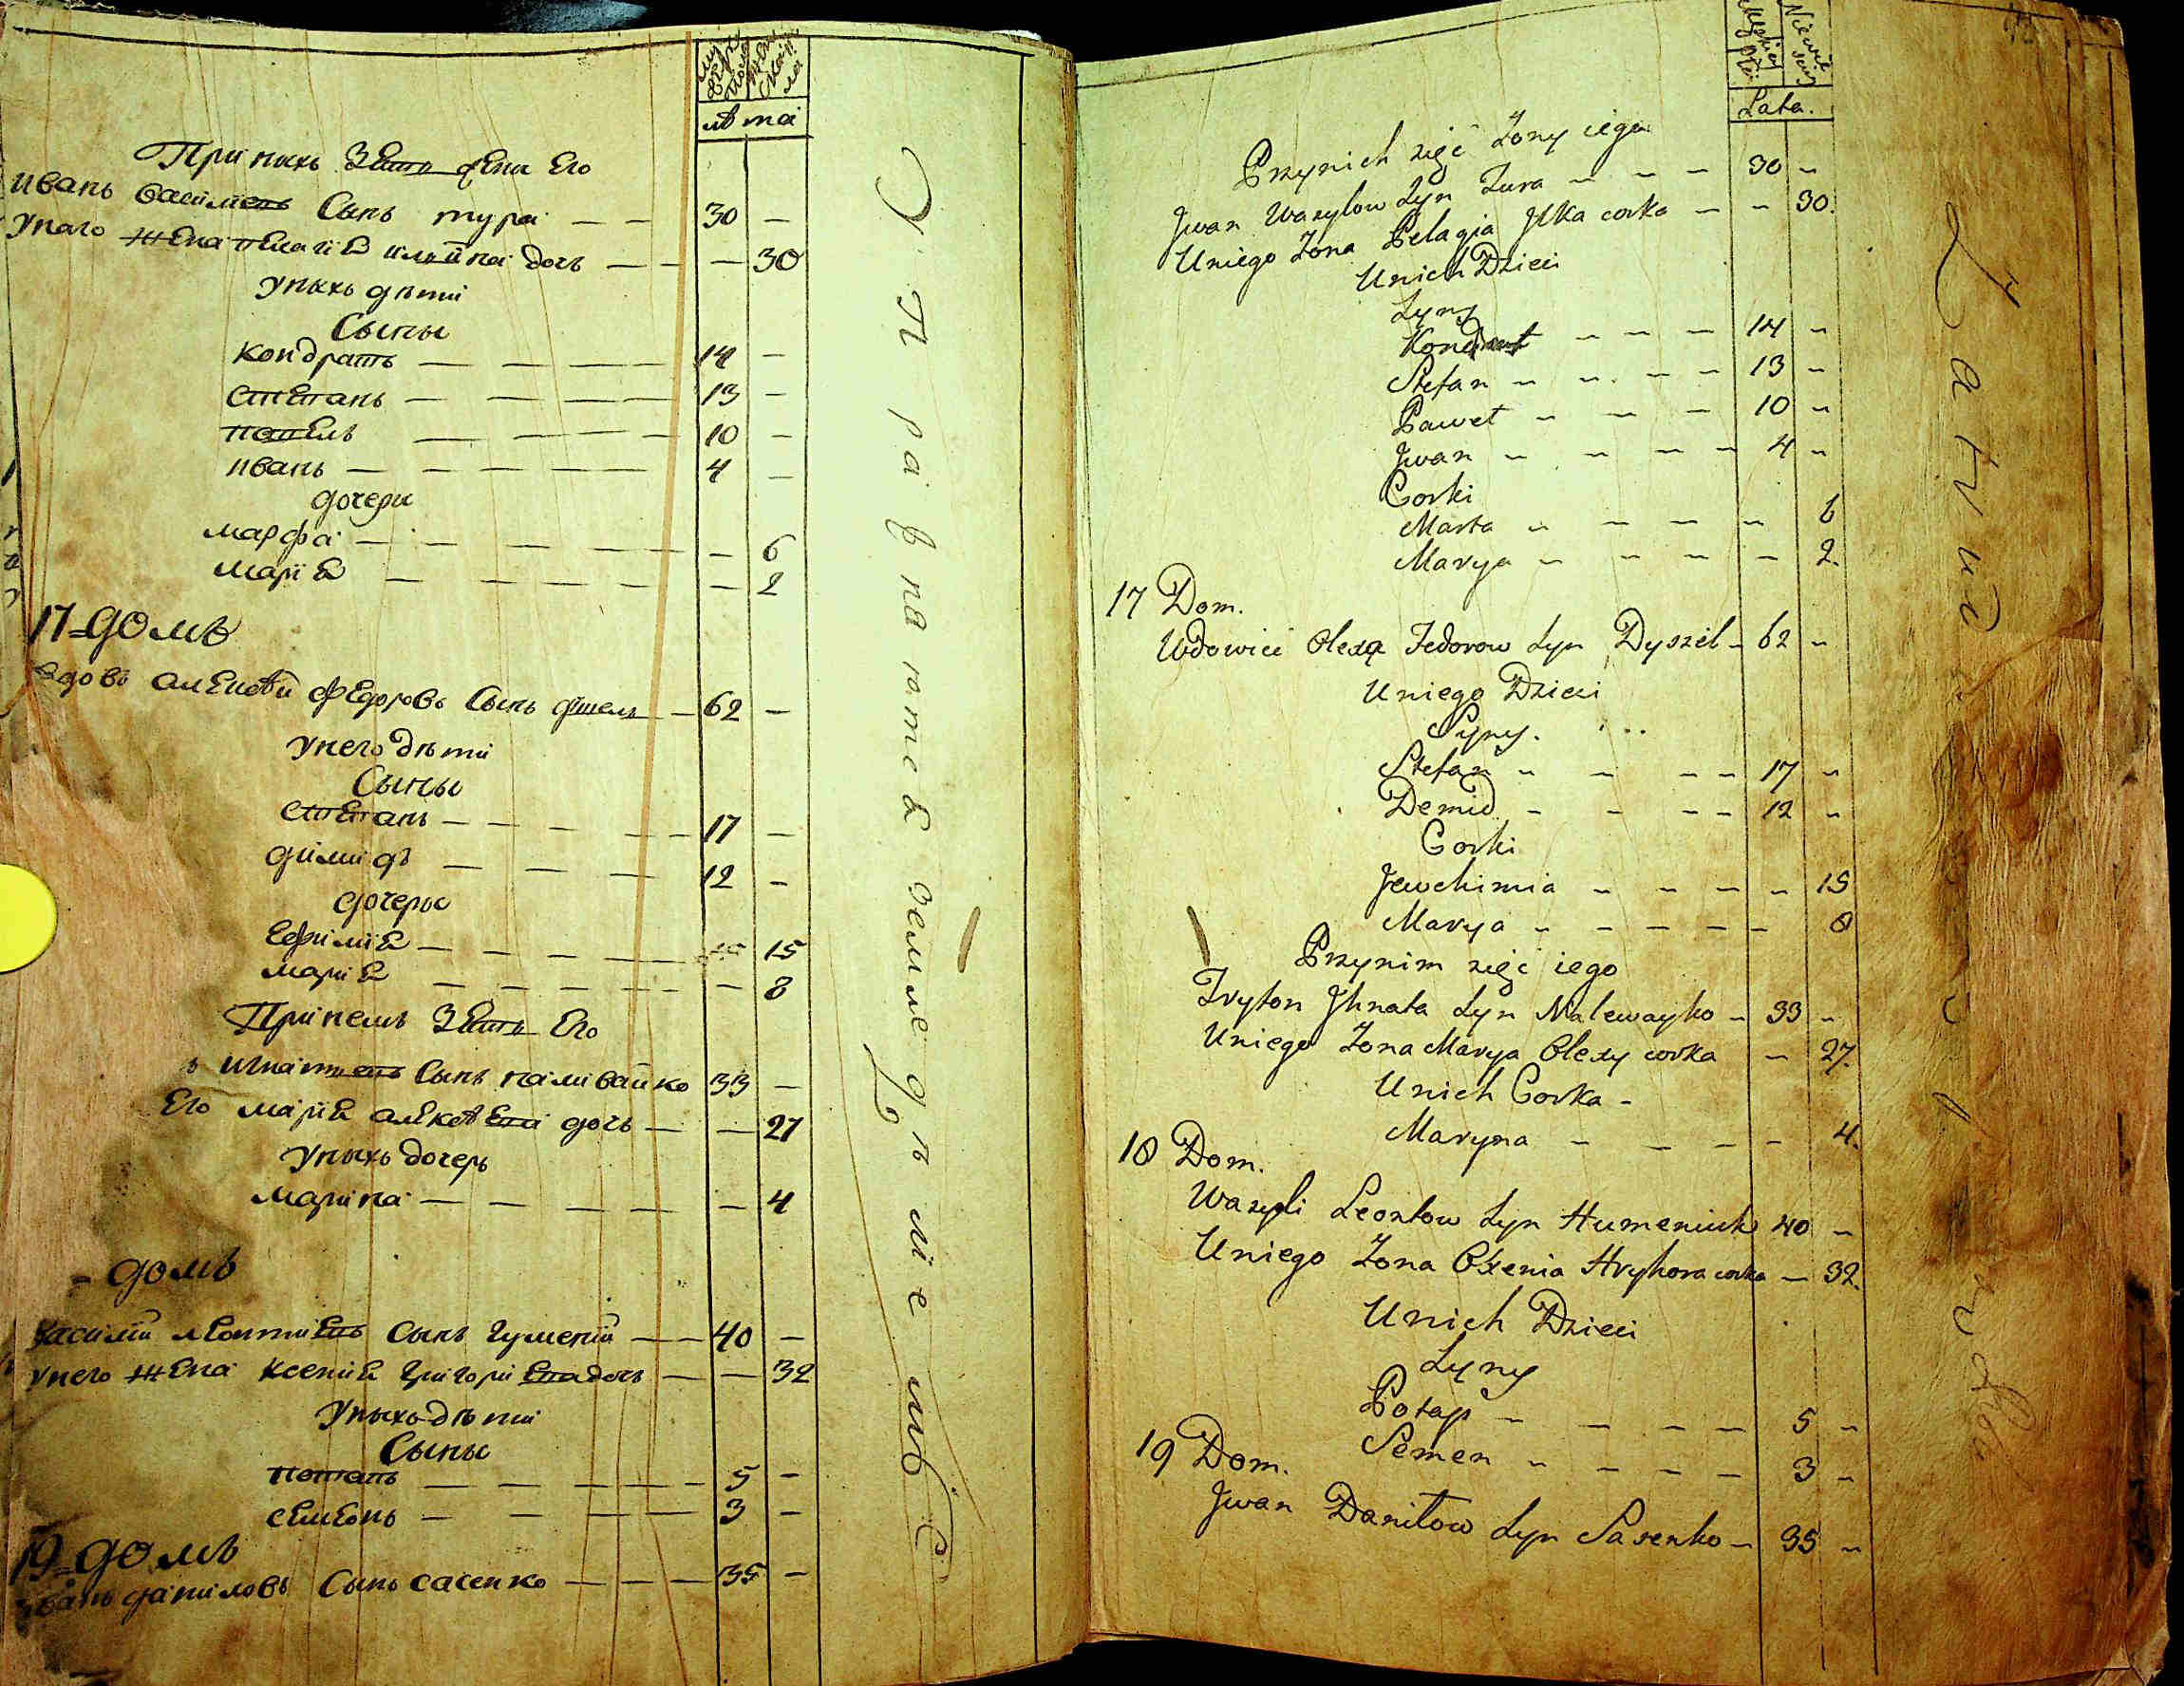 лѣта
При ныхъ зять жены Его
Иванъ Василіевъ Сынъ тура — — 30 —
Унаго жена пелагіѣ ильина дочь — — — 30
Уныхъ дѣти
Сыны
Кондратъ — — — — 14 —
Степанъ — — — — 13 —
павелъ — — — — 10 —
иванъ — — — — 4 —
дочери
марфа — — — — — 6
маріѣ — — — — — 2
17 = домъ
Вдовъ алексѣй Федоровъ Сынъ дишель — 62 —
Унего дѣти
Сыны
степанъ — — — — 17 —
димидъ — — — — 12 —
дочеры
Ефиміѣ — — — — 15
маріѣ — — — — — 8
Принемъ зять Его
игнатіевъ Сынъ наливайко 33 —
Его маріѣ алексѣева дочь — — 27
Уныхъ дочерь
марина — — — — — 4
= домъ
Василій леонтіевъ сынъ гуменій — — 40 —
Унего жена ксеніѣ григоріева дочь — — 32
Уныхъ дѣти
Сыны
потапъ — — — — 5 —
семѣонъ — — — — 3 —
19 = домъ
Иванъ даниловъ Сынъ сасенко — — — 35 —
Lata.
Przynich zięć Zony iego
Jwan Wasylow Syn Tura — — — 30 —
Uniego Zona Pelagia Jlka corka — — 30.
Unich Dzieci
Syny
Kondrat — — — 14 —
Stefan — — — — 13 —
Paweł — — — 10 —
Jwan — — — — 4 —
Corki
Marta — — — — 6
Marya — — — — — 2.
17 Dom.
Wdowiec Olexa Fedorow Syn Dyszel — 62 —
Uniego Dzieci
Syny.
Stefan — — — — 17 —
Demid — — — — 12 —
Corki
Jewchimia — — — — 15
Marya — — — — — 8
Przynim zięć iego
Tryfon Jhnata Syn Nalewayko — 33 —
Uniego Zona Marya Olexy corka — 27.
Unich Corka —
Maryna — — — — 4.
18 Dom.
Wasyli Leontow Syn Humeniuk 40 —
Uniego Zona Oxenia Hryhora corka — 32.
Unich Dzieci
Syny
Potap — — — — 5 —
Semen — — — — 3 —
19 Dom.
Jwan Daniłow Syn Sasenko — 35 —